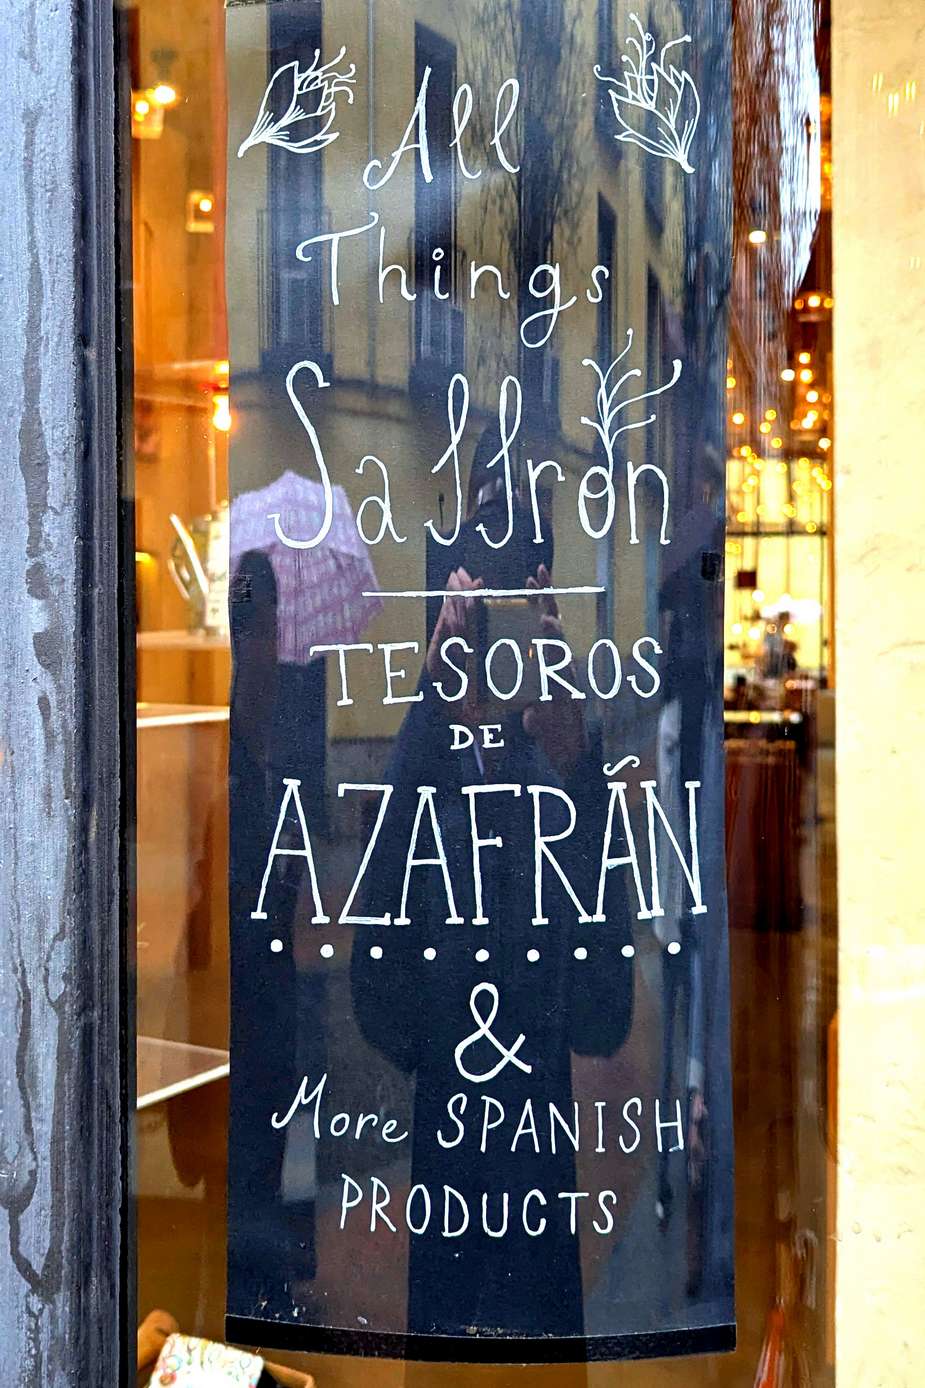 All
Things
Saffron
TESOROS
DE
AZAFRÁN
&
More SPANISH
PRODUCTS